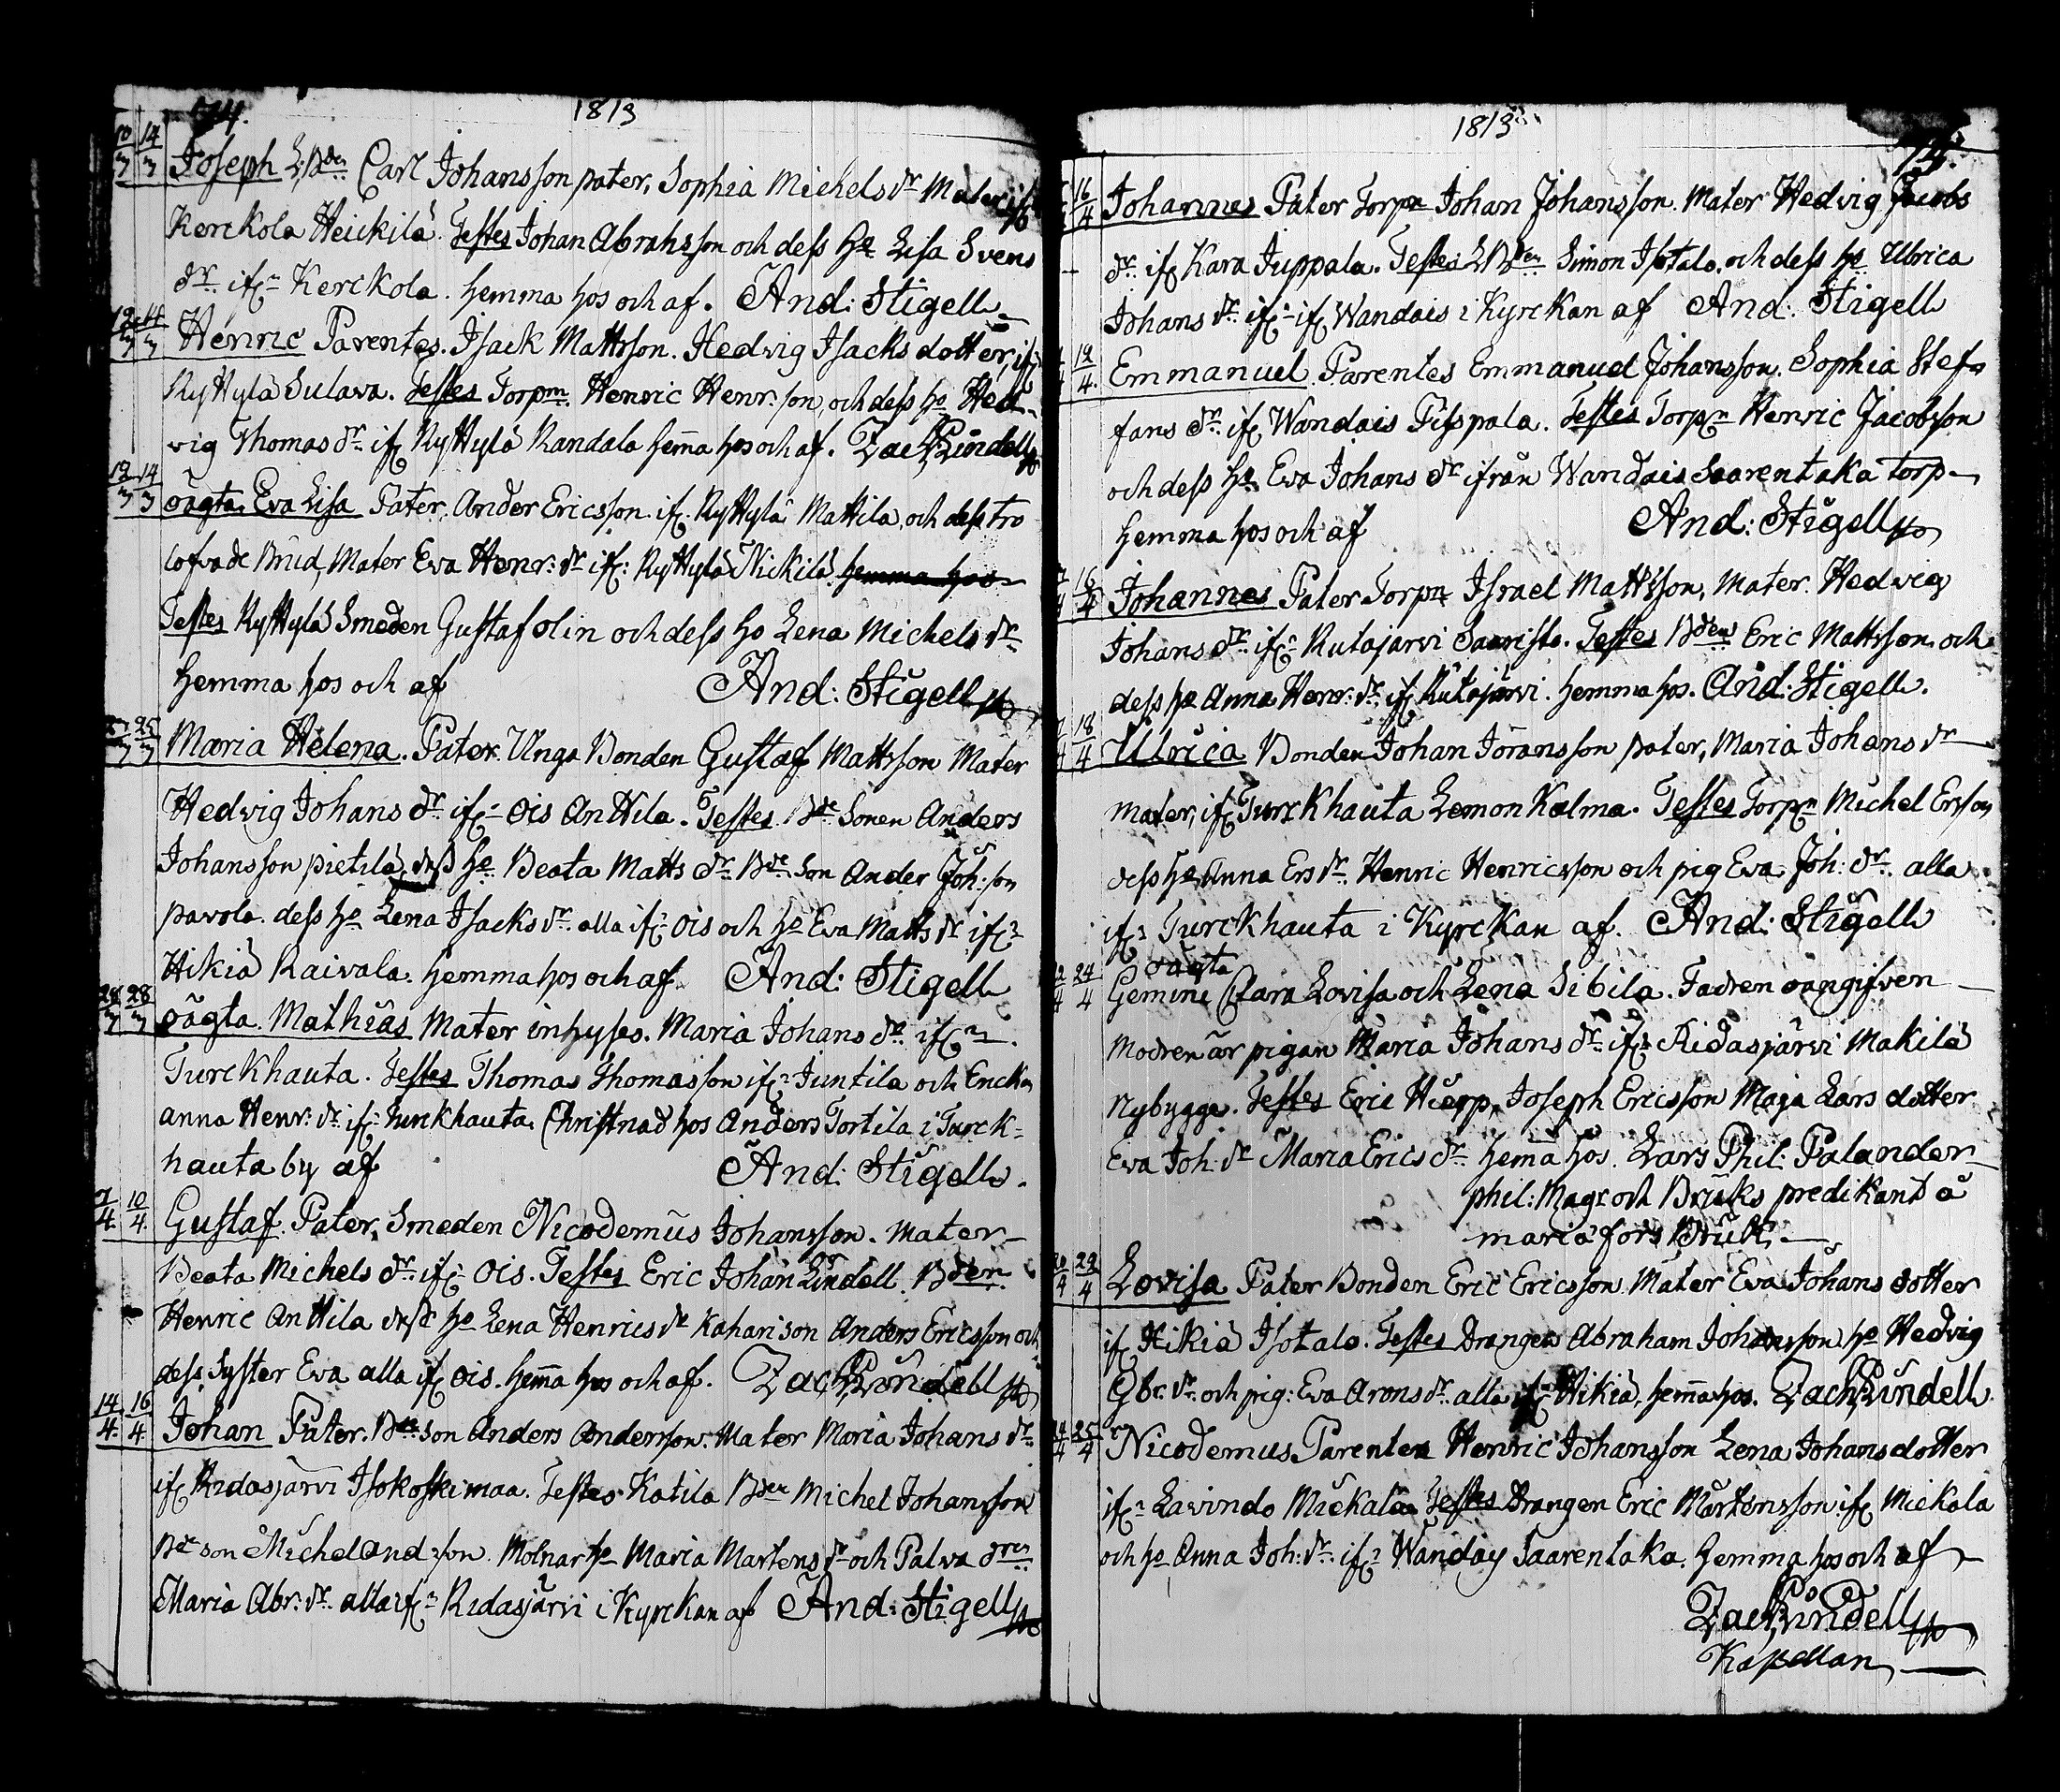 74. 1813
10/3 14/3 Joseph L. Bden Carl Johansson pater, Sophia Michels dr Mater ifr
Kerckola Heickilä. Testes Johan Abrahsson och dess ho Lisa Svens
dr. ifrn Kerckola. hemma hos och af. And: Stigell
12/3 14/3 Henric Parentes. Isack Mattsson. Hedvig Isacks dotter, ifr
Ryttylä Sulava. Testes Torpn. Henric Henr:son, och dess ho Hed-
vig Thomas dr if Ryttylä Kandala hem̄a hos och af. Zach Lindell
12/3 14/3 oägta. Eva Lisa Pater, Ander Ericsson. if. Ryttylä Mattila, och dess tro
lofvade Brud, Mater Eva Henr: dr if: Ryttylä Nickilä. hemma hos
Testes Ryttylä Smeden Gustaf Olin och dess ho Lena Michels dr
hemma hos och af And: Stigell
25/3 Maria Helena. Pater. Unga Bonden Gustaf Mattsson Mater
Hedvig Johans dr. ifr Ois Anttila. Testes Bde Sonen Anders
Johansson pietilä, dess ho Beata Matts dr. Bde Son Ander Joh:son
pavola. dess ho Lena Isacks dr. alla ifr Ois och ho Eva Matts dr ifr
Hikiä Raivala. hemma hos och af And: Stigell
28/3 28/3 oägta. Mathias Mater inhyses. Maria Johans dr. ifrn.
Turckhauta. Testes Thomas Thomasson ifr Juntila och Enckan
anna Henr: dr. ifr Turckhauta. Christnad hos Anders Tortila i Turck-
hauta by af And: Stigell.
7/4 10/4 Gustaf. Pater, Smeden Nicodemus Johansson. Mater
Beata Michels dr. ifr Ois. Testes Eric Johan Lindell. Bden
Henric Anttila dess ho Lena Henrics dr Kaharison Anders Ericsson och
dess Syster Eva alla if Ois. hem̄a hos och af. Zach Lindell
14/4 16/4 Johan Pater. Bde son Anders Andersson. Mater Maria Johans dr.
if Ridasjärvi Isokoskimaa. Testes Katila Bden Michel Johansson
Bde son Michel And:son. Molnar ho Maria Martens dr och Palva dren
Maria Abr: dr. alla ifr Ridasjärvi i Kyrckan af And: Stigell
1813 74.
16/4 Johannes Pater Torpn Johan Johansson. Mater Hedvig Jacobs
dr if Kara Juppala. Testes L Bden Simon Isotalo. och dess ho Ulrica
Johans dr. ifr if Wandais i Kyrckan af And: Stigell
19/4 Emmanuel. Parentes Emmanuel Johansson. Sophia Stef
fans dr. if Wandais Pispala. Testes Torpn Henric Jacobsson
och dess ho Eva Johans dr ifrån Wandais Saarentaka torp
hemma hos och af And: Stigell
16/4 Johannes Pater Torpn Israel Mattsson, Mater. Hedvig
Johans dr. ifr Rutajärvi Saaristo. Testes Bden Eric Mattsson och
dess ho Anna Henr: dr. if Rutajärvi. hemma hos. And: Stigell.
18/4 Ulrica Bonden Johan Joransson pater, Maria Johans dr
mater, if Turckhauta Lemon Kalma. Testes Torpn Michel Ersson
dess ho Anna Ers dr. Henric Henricsson och pig Eva Joh: dr. alla
ifr Turckhauta i Kyrckan af. And: Stigell
oägta
22/4 24/4 Gemini Clara Lovisa och Lena Sibila. Fadren oangifven
modren är pigan Maria Johans dr. ifr Ridasjärvi Makilä
Nybygge. Testes Eric Hierp, Joseph Ericsson Maja Lars dotter
Eva Joh: dr Maria Erics dr. hem̄a hos. Lars Phil: Palander
phil: Magr och Bruks predikant å
mariæfors Bruk.
29/4 Lovisa Pater Bonden Eric Ericsson. Mater Eva Johans dotter
if Hikiä Isotalo. Testes Drangen Abraham Johansson. ho Hedvig
Gbr: dr. och pig: Eva Arons dr. alla ifr Hikiä, hem̄a hos. Zach Lindell
24/4 25/4 Nicodemus. Parentes Henric Johansson Lena Johansdotter
ifr Lavindo Mickala Testes Drangen Eric Mårtensson. if Mickala
och ho Anna Joh: dr. ifr Wanday Saarentaka. hemma hos och af
Zach Lindell
Kapellan